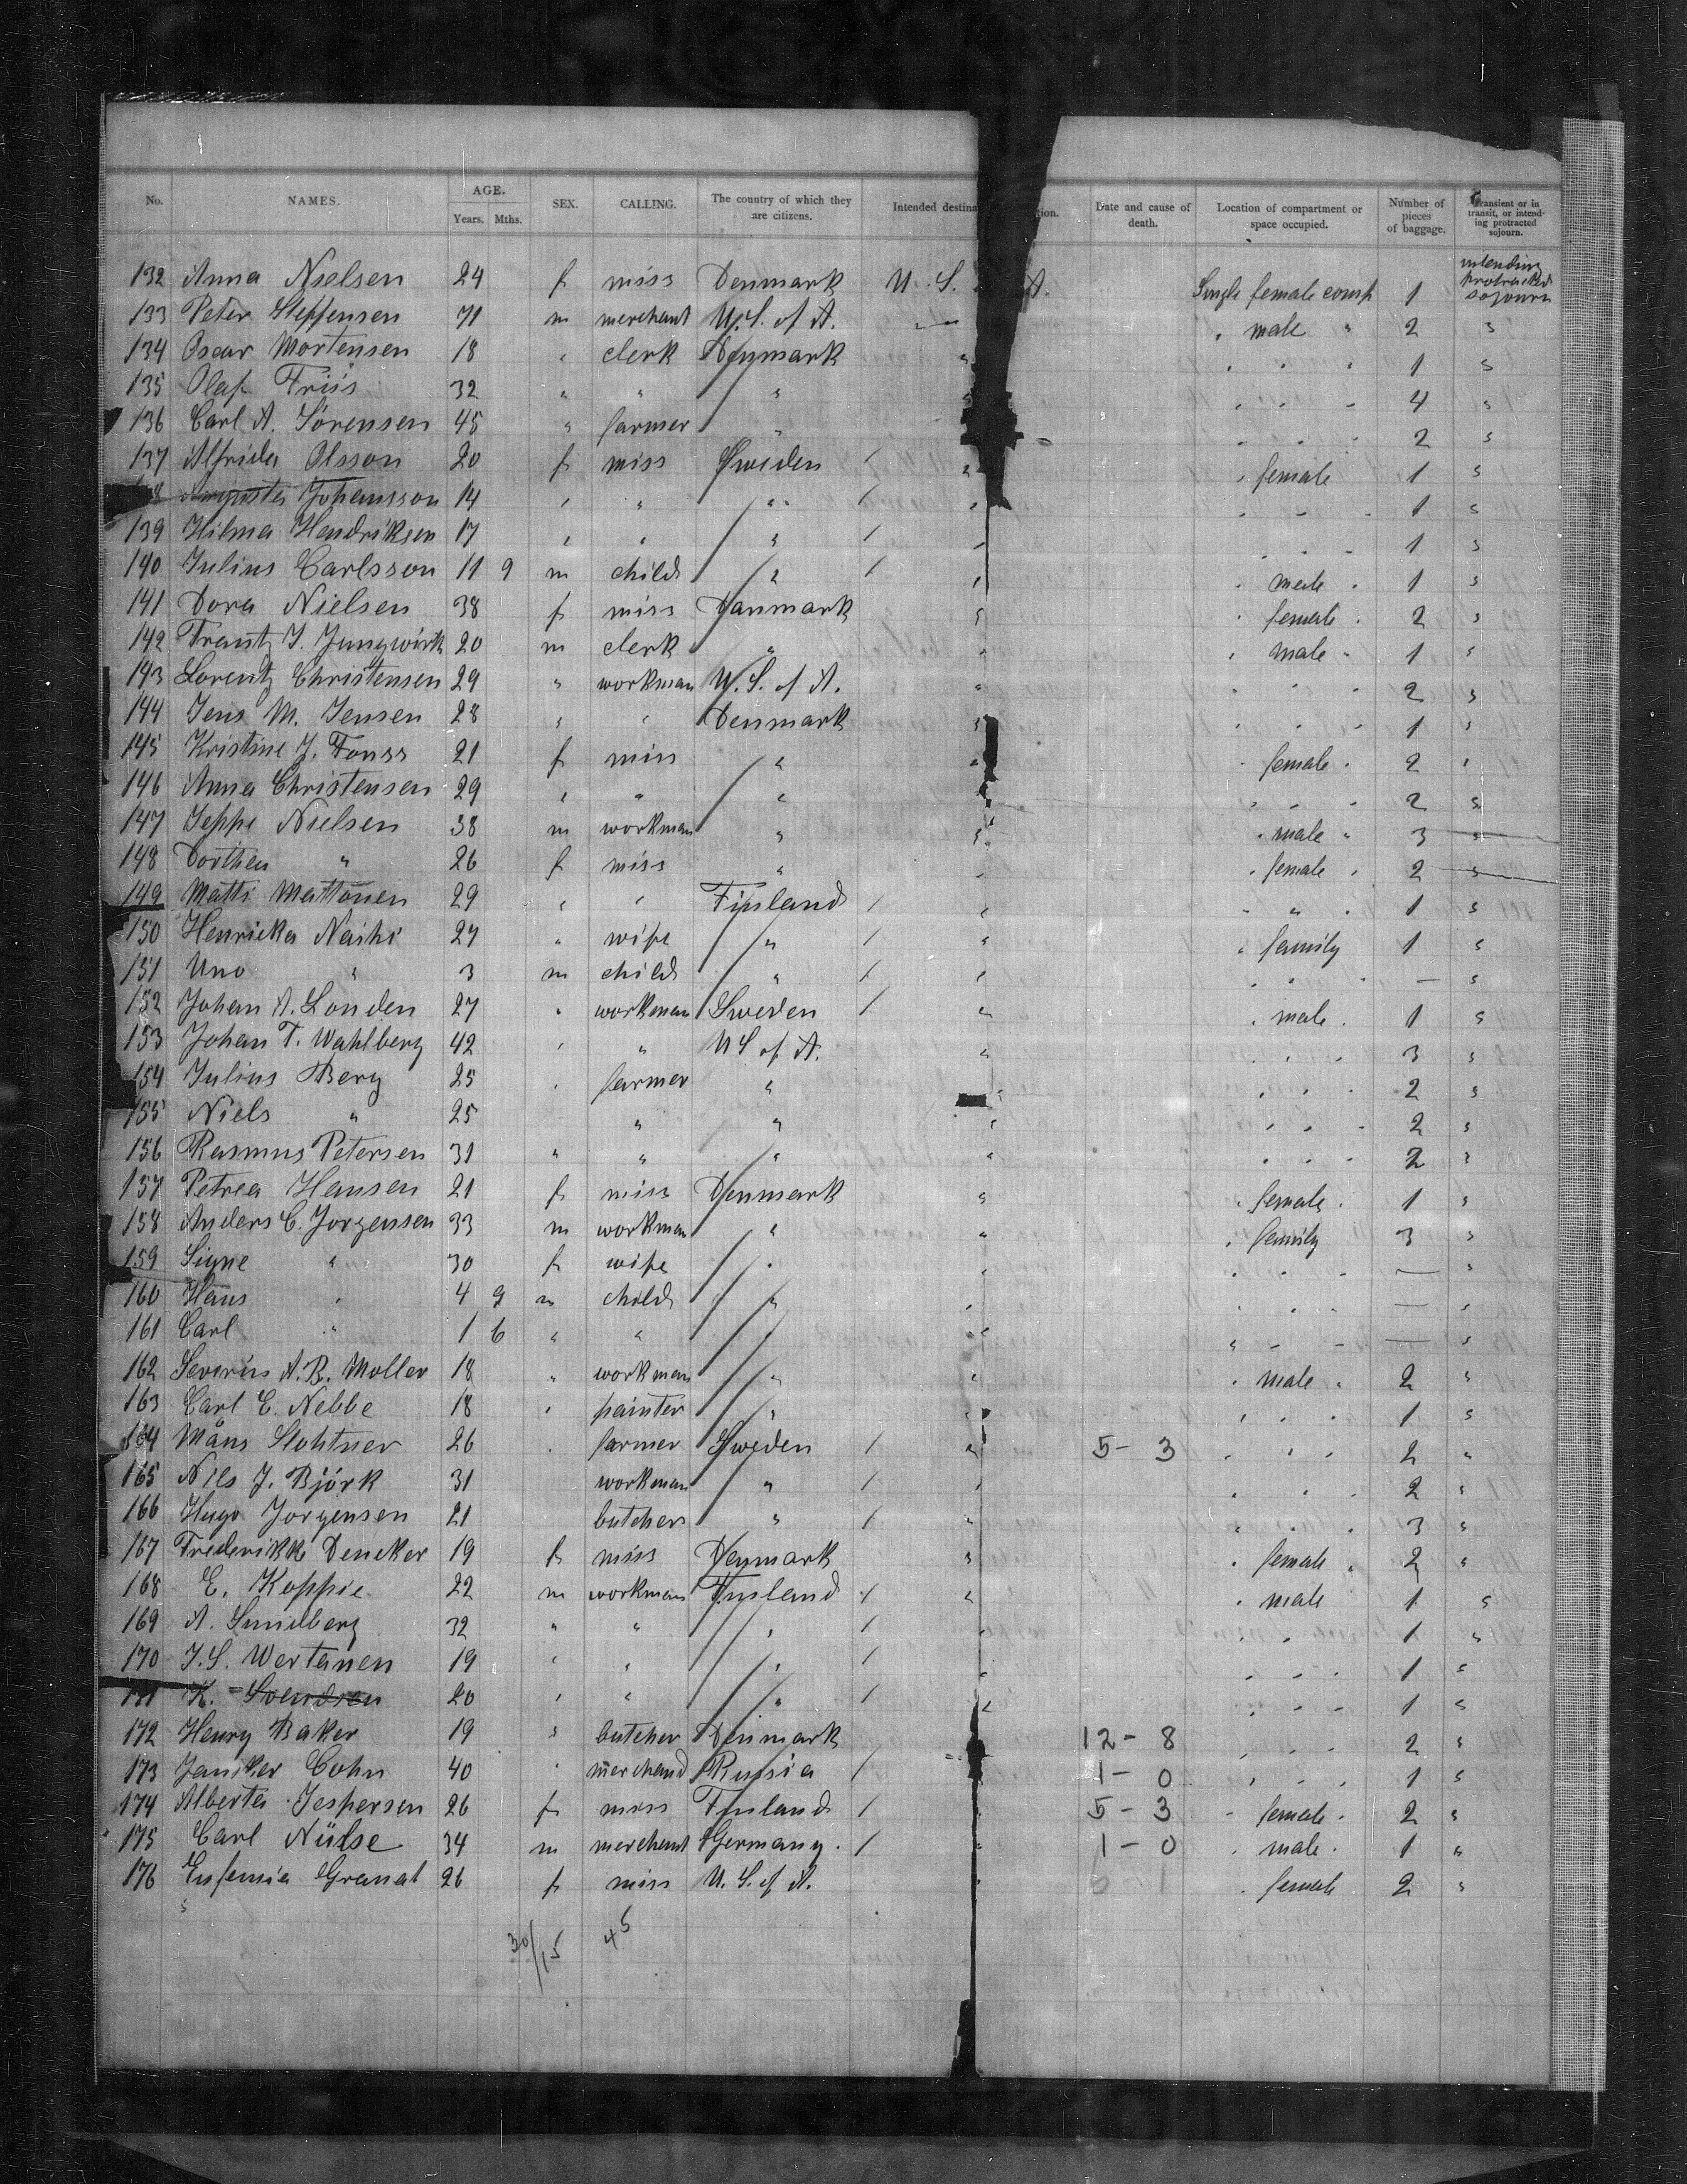 No. NAMES. AGE. Years. Mths. SEX. CALLING. The country of which they are citizens. Intended destina tion. Date and cause of death. Location of compartment or space occupied. Number of pieces of baggage. Transient or in transit, or intending protracted sojourn.
132 Anna Nielsen 24 f miss Denmark U.S. A. Single female comp 1 intending protracted sojourn
133 Peter Steffensen 71 m merchant U.S. of A. " male " 2 "
134 Oscar Mortensen 18 " clerk Denmark " " " " 1 "
135 Olaf Friis 32 " " " " " " " 4 "
136 Carl A. Sörensen 45 " farmer " " " " 2 "
137 Alfrida Olsson 20 f miss Sweden / " " female 1 "
Augusta Johansson 14 " " " / " " " " 1 "
139 Hilma Hendriksen 17 " " " / " " " " 1 "
140 Julius Carlsson 11 9 m child " / " " male " 1 "
141 Dora Nielsen 38 f miss Danmark " " female " 2 "
142 Frantz J. Jungwirth 20 m clerk " " " male " 1 "
143 Lorentz Christensen 29 " workman U.S. of A. " " " " 2 "
144 Jens M. Jensen 28 " " Denmark " " " " 1 "
145 Kristine J. Fonss 21 f miss " " " female " 2 "
146 Anna Christensen 29 " " " " " " " 2 "
147 Jeppe Nielsen 38 m workman " " " male " 3 "
148 Dorthea " 26 f miss " " " female " 2 "
149 Matti Mattonen 29 " " Finland / " " " " 1 "
150 Henrieka Naihi 27 " wife " / " " family 1 "
151 Uno " 3 m child " / " " " " — "
152 Johan A. Londen 27 " workman Sweden / " " male " 1 "
153 Johan T. Wahlberg 42 " " US of A. " " " " 3 "
154 Julius Berg 25 " farmer " " " " " 2 "
155 Niels " 25 " " " " " " 2 "
156 Rasmus Petersen 31 " " " " " " " 2 "
157 Petrea Hansen 21 f miss Denmark " " female " 1 "
158 Anders C. Jorgensen 33 m workman " " " family 3 "
159 Signe " 30 f wife " " " " " — "
160 Hans " 4 9 m child " " " " " — "
161 Carl " 1 6 " " " " " " " — "
162 Severin A.B. Moller 18 " workman " " " male " 2 "
163 Carl E. Nebbe 18 " painter " " " " " 1 "
164 Måns Slohtner 26 " farmer Sweden / " 5 - 3 " " " 2 "
165 Nils J. Björk 31 workman " / " " " " 2 "
166 Hugo Jorgensen 21 butcher " / " " " " 3 "
167 Frederikke Dencker 19 f miss Denmark " " female " 2 "
168 E. Koppie 22 m workman Finland / " " male 1 "
169 A. Smidberg 32 " " " / " " " 1 "
170 J.S. Wertanen 19 " " " / " " " " 1 "
171 K. Svendsen 20 " " " / " " " " 1 "
172 Henry Baker 19 " butcher Denmark 12 - 8 " " " 2 "
173 Cohn 40 " merchand Russia / 1 - 0 " " " 1 "
174 Alberta Jespersen 26 f miss Finland / 5 - 3 " female " 2 "
175 Carl Nülse 34 m merchant Germany. / " 1 - 0 " male " 1 "
176 Eufemia Granat 26 f miss U.S. of A. " female 2 "
30/15 45